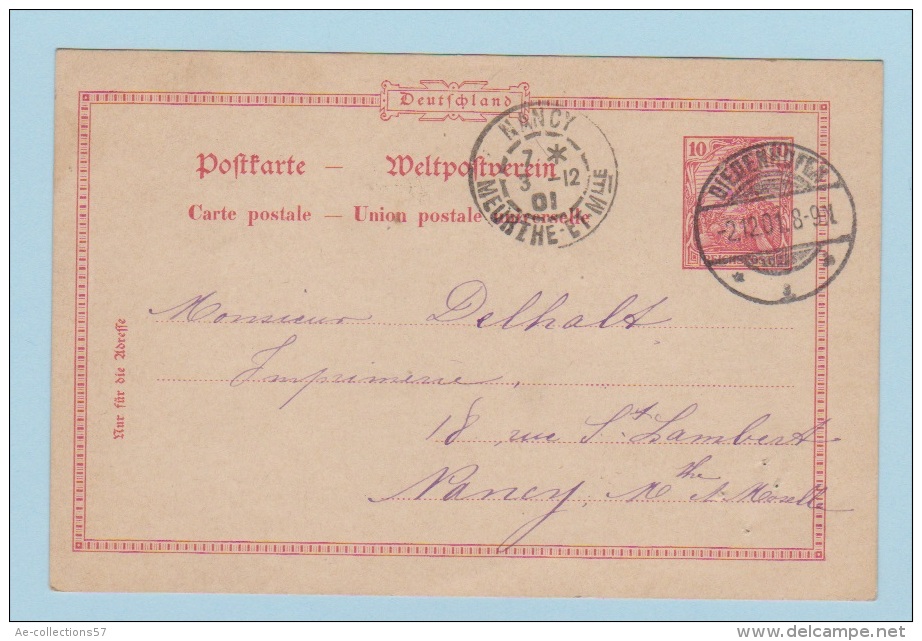 Deutschland
Postkarte — Weltpostverein
Carte postale — Union postale universelle
NANCY
7 *
3 -12
01
MEURTHE-ET-Mlle
10 10
REICHSPOST
DIEDENHOFEN
-2.12.01. 8-9N
* *
a
Nur für die Adresse
Monsieur Delhalt
Imprimerie,
18, rue St. Lambert
Nancy, Mthe et Moselle
Ae-collections57